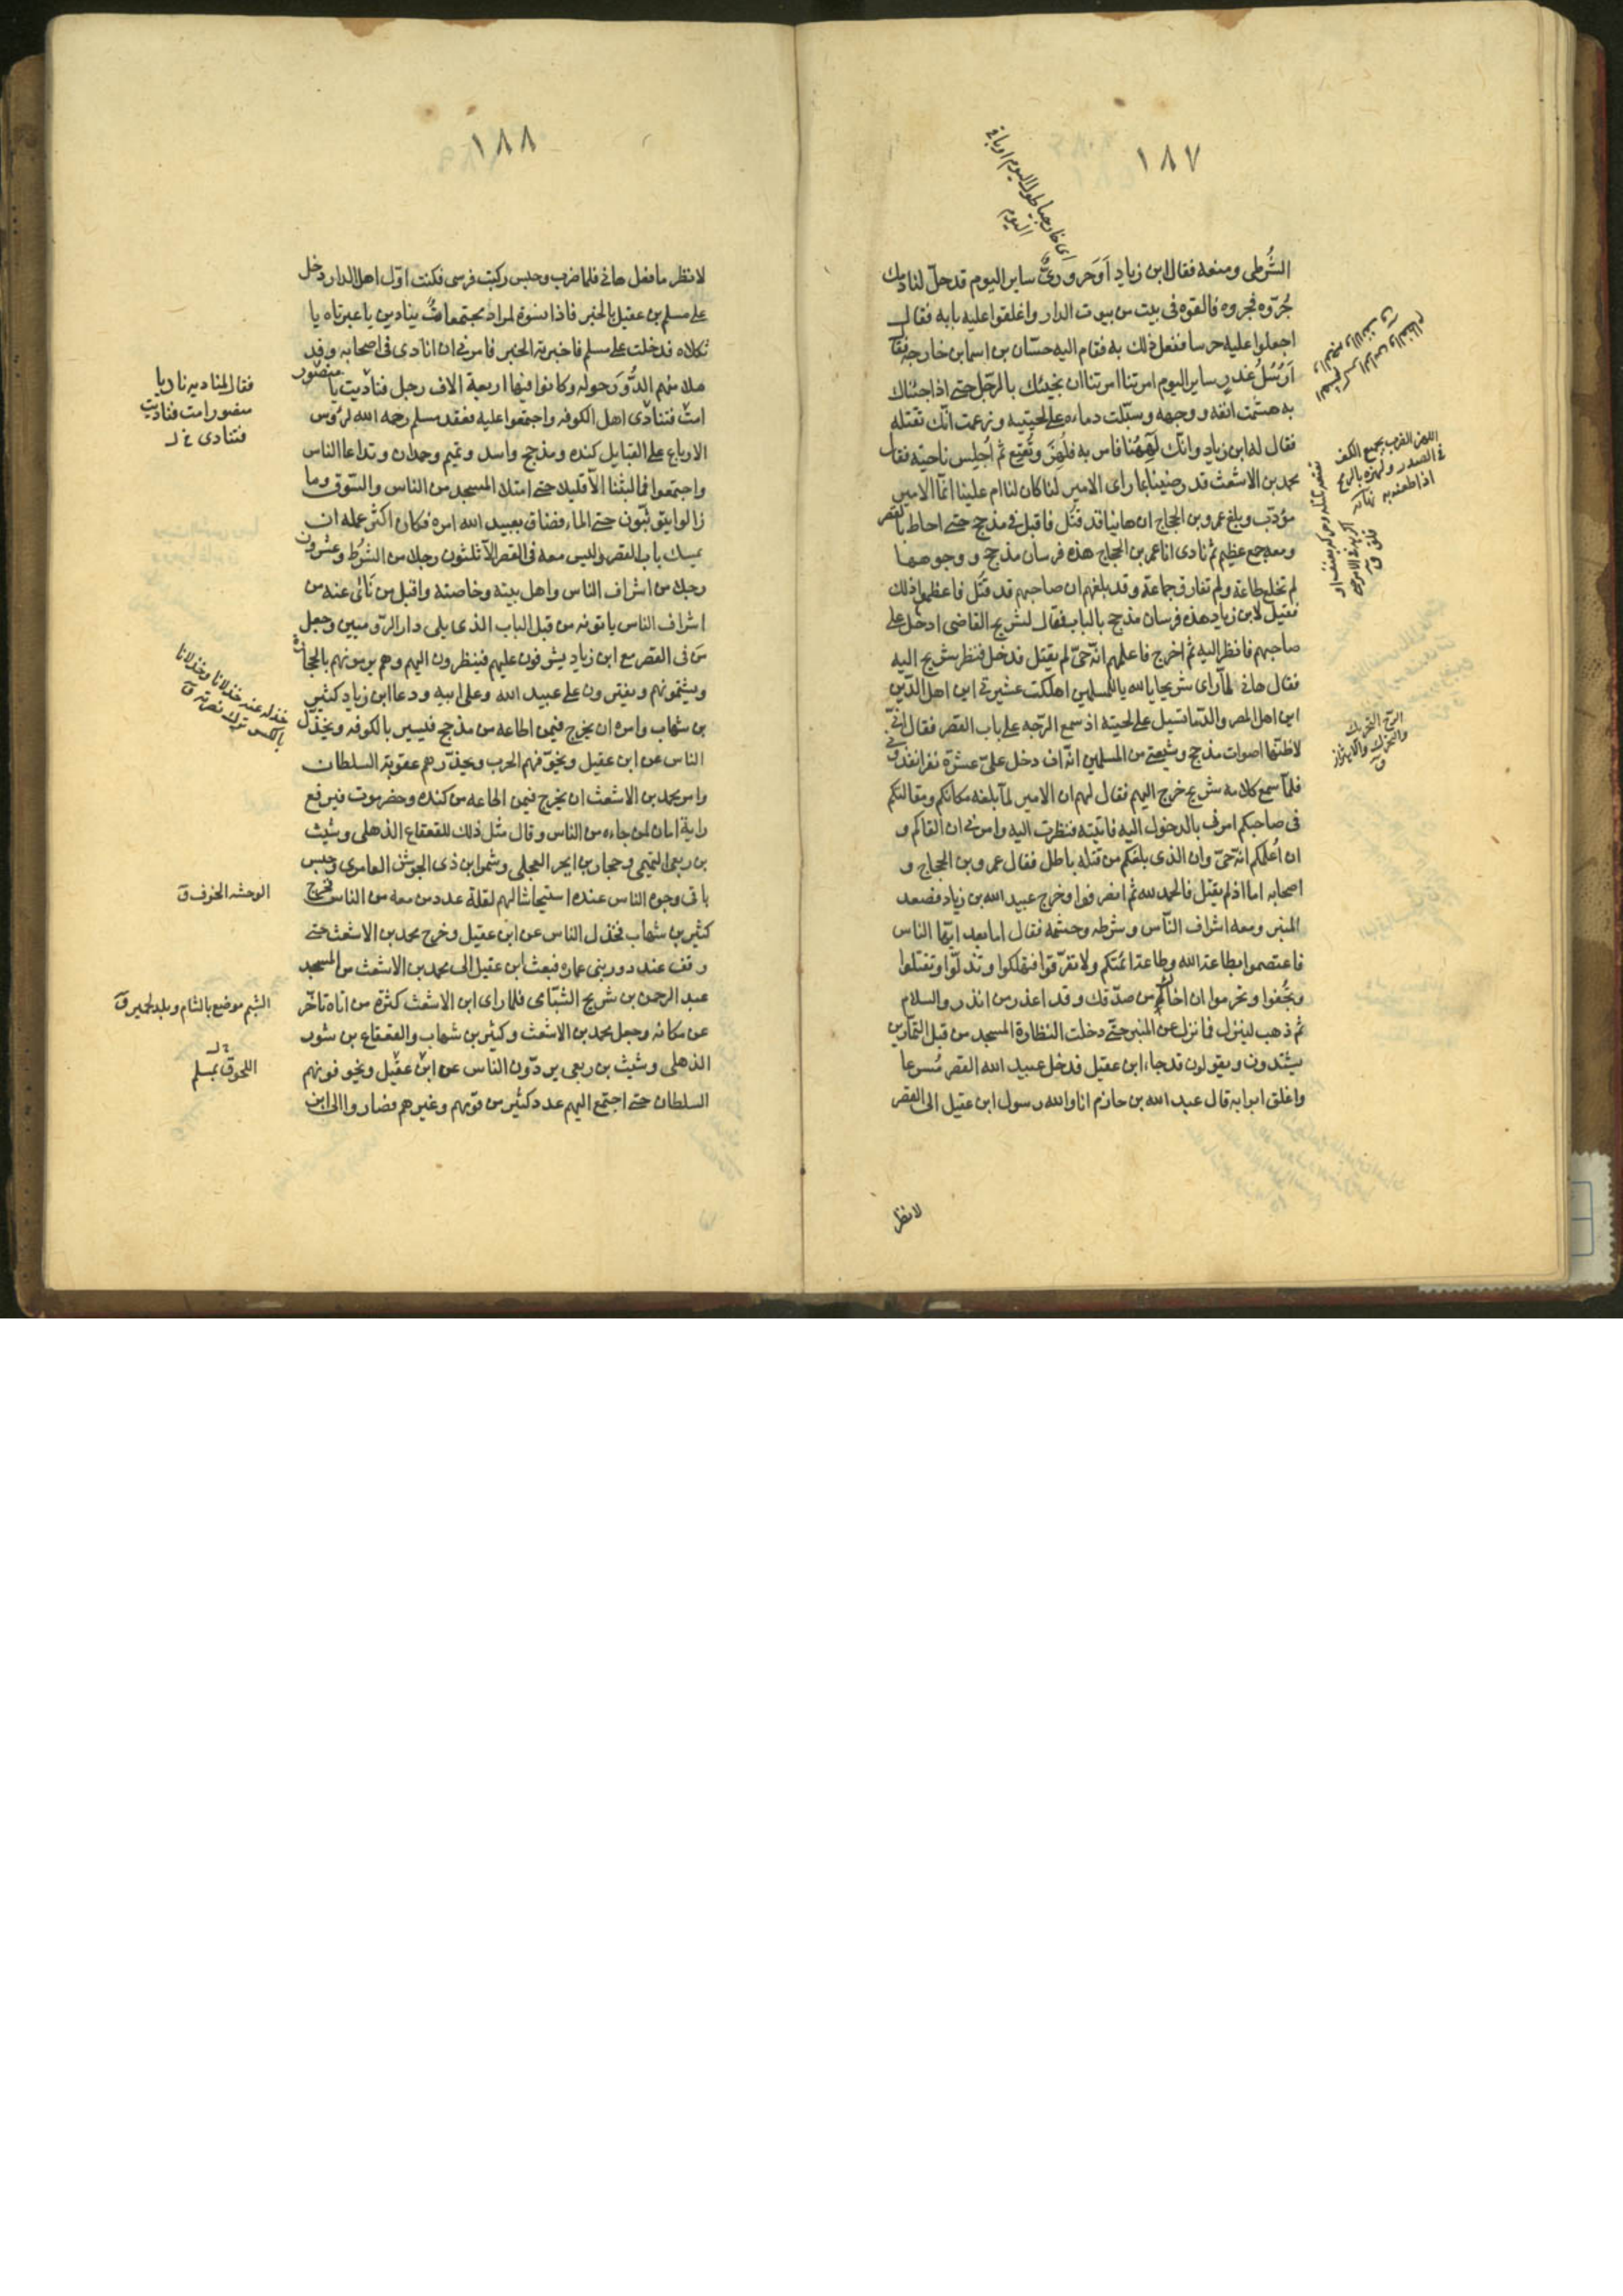 ١٨٧
الشُّرطى ومنعه فقال ابن زياد اَوَحَرورىٌّ ساير اليوم قد حلّ لنا دمك
جُرّوه فجروه فالقوه فى بيت من بيوت الدار واغلقوا عليه بابه فقال
اجعلوا عليه حرسا ففعل ذلك به فقام اليه حسّان بن اسما بن خارجة فقال
اَرُسُلُ غدرٍ ساير اليوم امرتنا ان نجيئك بالرّجل حتى اذا جئناك
به هشّمت انفه ووجهه وسيّلت دماءه على لحيته وزعمت انّك تقتله
فقال له ابن زياد وانّك لههُنا فامر به فلُهِزَ وتُعتِع ثم اُجلِس ناحية فقال
محمد بن الاشعث قد رضينا بما راى الامير لنا كان لنا ام علينا انّما الامير
مؤدّب وبلغ عمرو بن الحجاج ان هانيا قد قُتل فاقبل فى مذحج حتى احاط بالقصر
ومعه جمع عظيم ثم نادى انا عمر بن الحجاج هذه فرسان مذحج ووجوهها
لم تخلع طاعة ولم تفارق جماعة وقد بلغهم ان صاحبهم قد قُتل فاعظموا ذلك
فقيل لابن زياد هذه فرسان مذحج بالباب فقال لشريح القاضى ادخل على
صاحبهم فانظر اليه ثم اخرج فاعلمهم انّه حىّ لم يقتل فدخل فنظر شريح اليه
فقال هانى لمّا راى شريحا يا لله يا للمسلمين اهلكت عشيرتى اين اهل الدّين
اين اهل المصر والدّما تسيل على لحيته اذ سمع الرّجّه على باب القصر فقال انّى
لاظنّها اصوات مذحج وشيعتى من المسلمين انّه ان دخل علىّ عشرة نفر انقذونى
فلمّا سمع كلامه شريح خرج اليهم فقال لهم ان الامير لمّا بلغه مكانكم ومقالتكم
فى صاحبكم امرنى بالدخول اليه فاتيته فنظرت اليه وامرنى ان القاكم و
ان اُعلمكم انّه حىّ وان الذى بلغكم من قتله باطل فقال عمرو بن الحجاج و
اصحابه اما اذ لم يقتل فالحمد لله ثم انصرفوا وخرج عبيد الله بن زياد فصعد
المنبر ومعه اشراف النّاس وشُرطه وحشمه فقال اما بعد ايّها الناس
فاعتصموا بطاعة الله وطاعة ائمّتكم ولا تفرّقوا فتهلكوا وتذلّوا وتقتلوا
وتجُفوا وتحرموا ان اخاكم من صدّقك وقد اعذر من انذر والسلام
ثم ذهب لينزل فما نزل عن المنبر حتّى دخلت النظارة المسجد من قبل التمّارين
يشتدون ويقولون قد جاء ابن عقيل فدخل عبيد الله القصر مُسرعا
واغلق ابوابه قال عبد الله بن حازم انا والله رسول ابن عقيل الى القصر
لانظر
اللهز الضرب بجميع الكف
فى الصدر ولهزه بالرمح
اذا طعنه به
الرّج التحريك
والتحرك والاهتزاز
ق
١٨٨
لانظر ما فعل هانى فلما ضرب وحبس ركبت فرسى فكنت اوّل اهل الدار دخل
على مسلم بن عقيل بالخبر فاذا نسوة لمراد مجتمعات ينادين يا عبرتاه يا
ثكلاه فدخلت على مسلم فاخبرته الخبر فامرنى ان انادى فى اصحابه وقد
ملا منهم الدُّور حوله وكانوا فيها اربعة الاف رجل فناديت يا منصور
امت فتنادى اهل الكوفه واجتمعوا عليه فعقد مسلم رحمه الله لرُوس
الارباع على القبايل كنده ومذحج واسد وتميم وهمدان وتداعا الناس
واجتمعوا فما لبثنا الّا قليلا حتى امتلا المسجد من الناس والسّوق وما
زالوا يتوثّبون حتى المساء فضاق بعبيد الله امره فكان اكثر عمله ان
يمسك باب القصر وليس معه فى القصر الّا ثلثون رجلا من الشُرَط وعشرون
رجلا من اشراف الناس واهل بيته وخاصته واقبل من نائى عنه من
اشراف الناس ياتونه من قبل الباب الذى يلى دار الرّوميين وجعل
من فى القصر مع ابن زياد يشرفون عليهم فينظرون اليهم وهم يرمونهم بالحجارة
ويشتمونهم ويفترون على عبيد الله وعلى ابيه ودعا ابن زياد كثير
بن شهاب وامره ان يخرج فيمن اطاعه من مذحج فيسير بالكوفه ويخذّل
الناس عن ابن عقيل ويخوّفهم الحرب ويحذّرهم عقوبة السلطان
وامر محمد بن الاشعث ان يخرج فيمن اطاعه من كنده وحضرموت فيرفع
راية امان لمن جاءه من الناس وقال مثل ذلك للقعقاع الذهلى وشبث
بن ربعى التميمى وحجار بن ابحر العجلى وشمر ابن ذى الجوشن العامرى وحبس
باقى وجوه الناس عنده استيحاشا اليهم لقلة عدد من معه من الناس فخرج
كثير بن شهاب يخذل الناس عن ابن عقيل وخرج محمد بن الاشعث حتى
وقف عند دور بنى عماره فبعث ابن عقيل الى محمد بن الاشعث من المسجد
عبد الرحمن بن شريح الشبّامى فلما راى ابن الاشعث كثرة من اتاه تاخّر
عن مكانه وجعل محمد بن الاشعث وكثير بن شهاب والقعقاع بن شور
الذهلى وشبث بن ربعى يردّون الناس عن ابن عقيل ويخوفونهم
السلطان حتى اجتمع اليهم عدد كثير من قومهم وغيرهم فصاروا الى ابن
فقال لمناديه ناد يا
منصور امت فناديت
فتنادى خ ل
خذله عنه خذلانا وخذلانا
بالكسر ترك نصرته ق
الوحشه الخوف ق
الشبم موضع بالشام وبلد لحمير ق
خ ل
اللحوق بمسلم